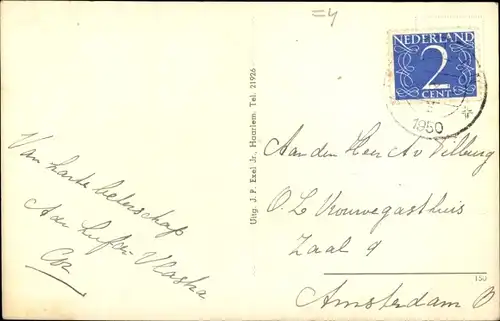 =4
NEDERLAND
2
CENT
1950
Van harte beterschap
Cor
Uitg. J. P. Exel Jr., Haarlem. Tel. 21926
Aan den Heer A v Tilburg
O. L Vrouwegasthuis
Zaal 9
150
Amsterdam O